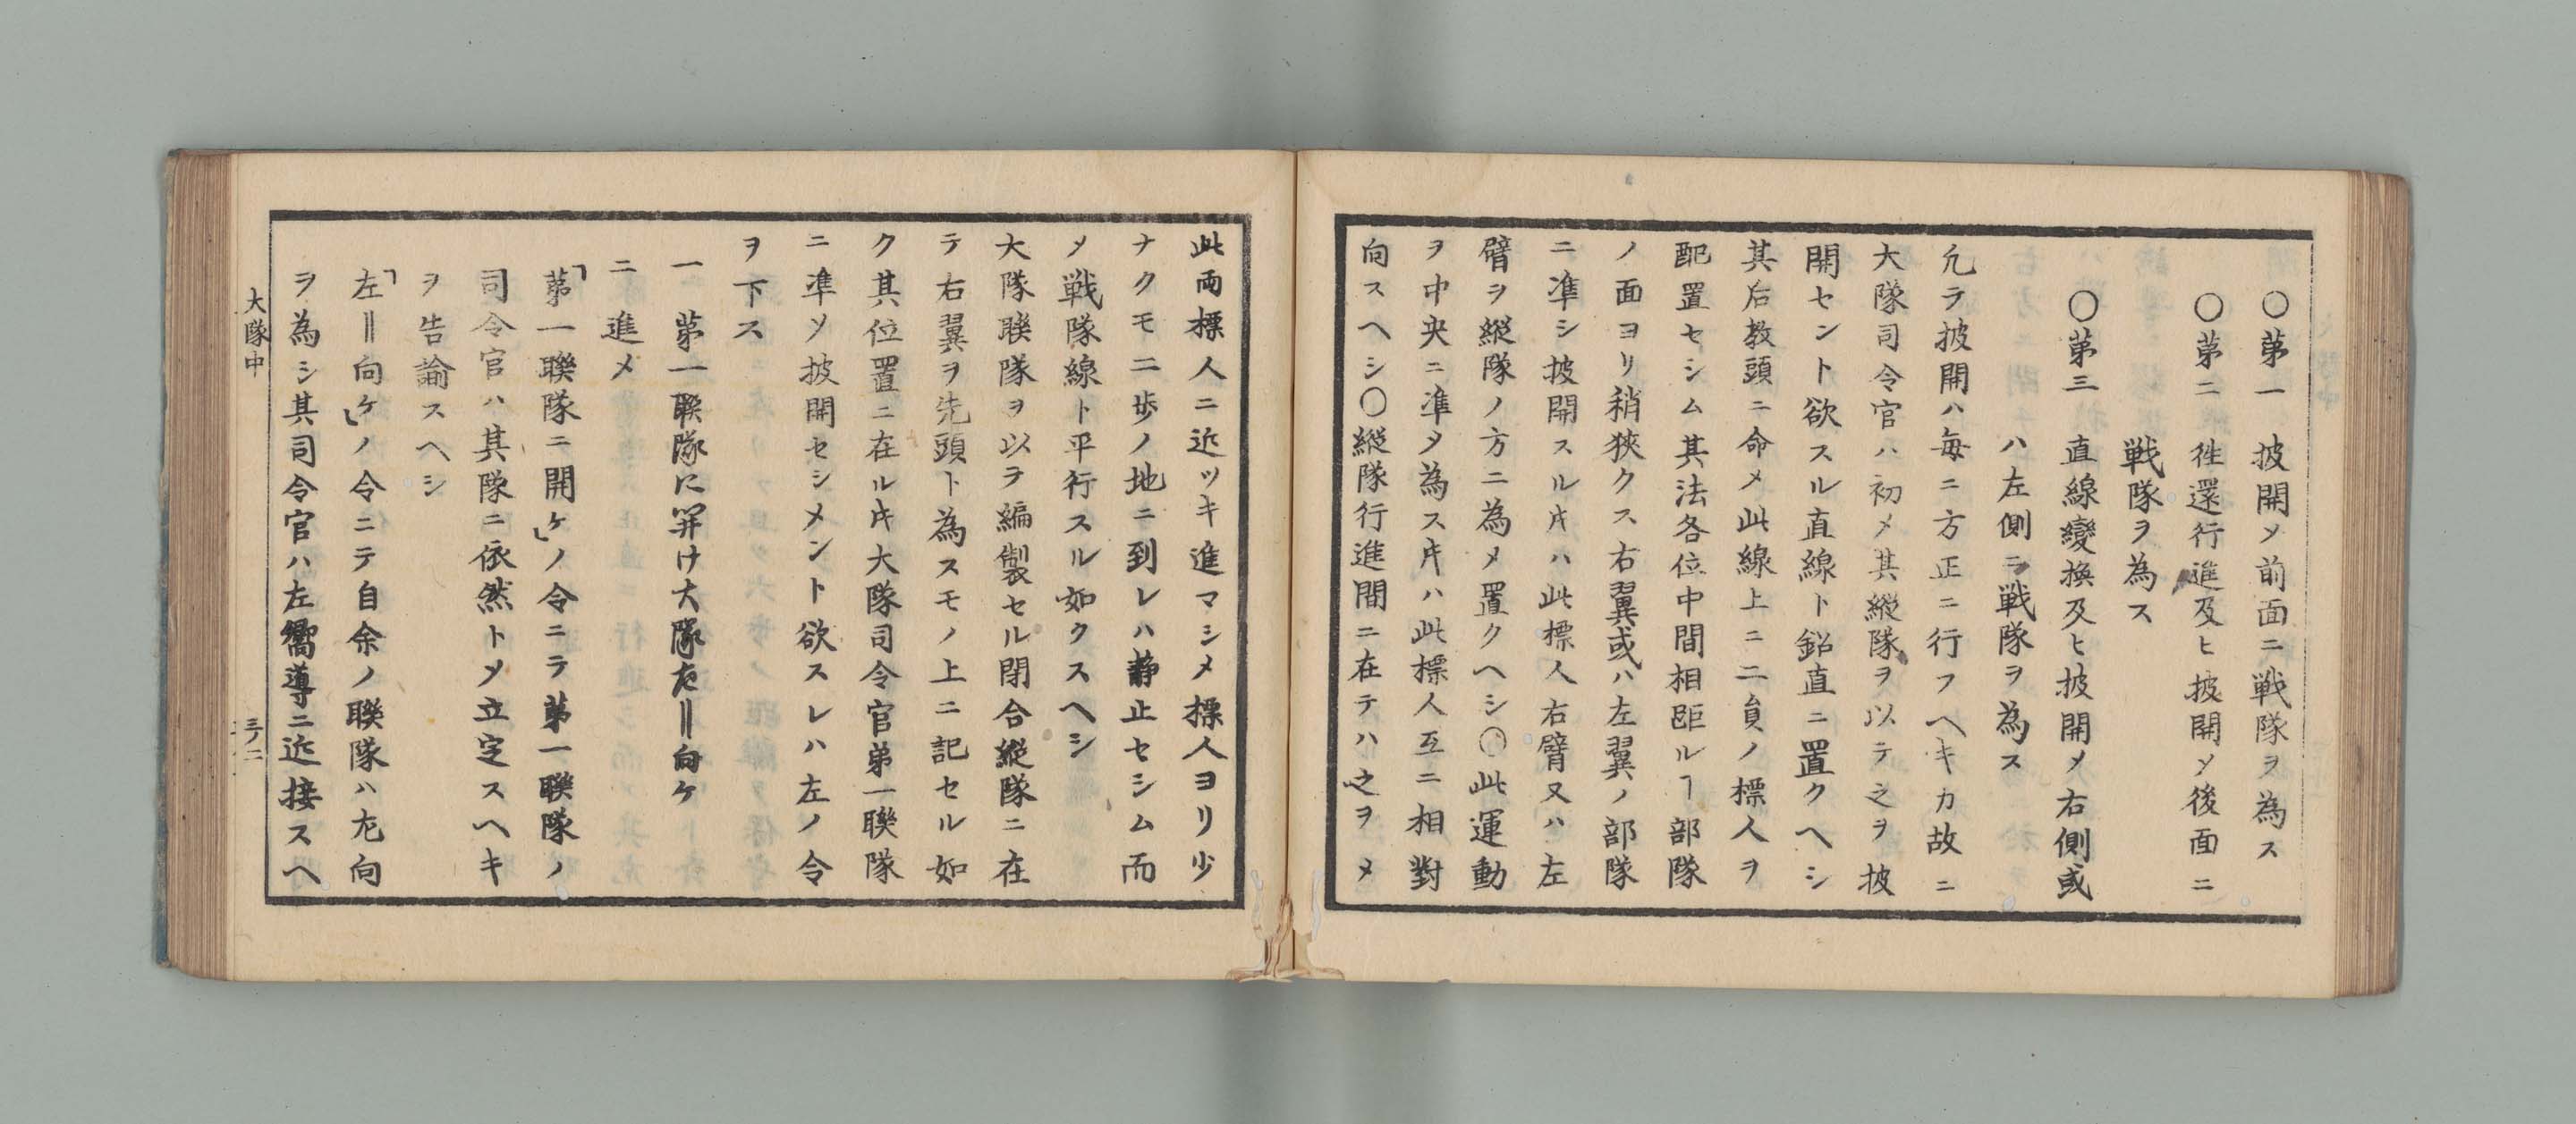 〇第一　披開〆前面ニ戦隊ヲ為ス
〇第二　徃還行進及ヒ披開〆後面ニ
戦隊ヲ為ス
〇第三　直線變換及ヒ披開〆右側或
ハ左側ニ戦隊ヲ為ス
凢ラ披開ハ毎ニ方正ニ行フヘキカ故ニ
大隊司令官ハ初メ其縦隊ヲ以テ之ヲ披
開セント欲スル直線ト鉛直ニ置クヘシ
其后教頭ニ命メ此線上ニ二負ノ標人ヲ
配置セシム其法各位中間相距ルヿ部隊
ノ面ヨリ稍狹クス右翼或ハ左翼ノ部隊
ニ準シ披開スル𪜈ハ此標人右臂又ハ左
臂ヲ縦隊ノ方ニ為メ置クヘシ〇此運動
ヲ中央ニ準〆為ス𪜈ハ此標人互ニ相對
向スヘシ〇縦隊行進間ニ在テハ之ヲ〆
此両標人ニ近ツキ進マシメ標人ヨリ少
ナクモ二歩ノ地ニ到レハ静止セシム而
〆戦隊線ト平行スル如クスヘシ
大隊聯隊ヲ以ヲ編製セル閉合縦隊ニ在
テ右翼ヲ先頭ト為スモノ上ニ記セル如
ク其位置ニ在ル𪜈大隊司令官第一聯隊
ニ準ソ披開セシメント欲スレハ左ノ令
ヲ下ス
一　第一聯隊に開け大隊左‖向ケ
二　進メ
「第一聯隊ニ開ケ」ノ令ニラ第一聯隊ノ
司令官ハ其隊ニ依然ト〆立定スヘキ
ヲ告諭スヘシ
「左‖向ケ」ノ令ニテ自余ノ聯隊ハ左向
ヲ為シ其司令官ハ左嚮導ニ近接スヘ
大隊中
三ノ二